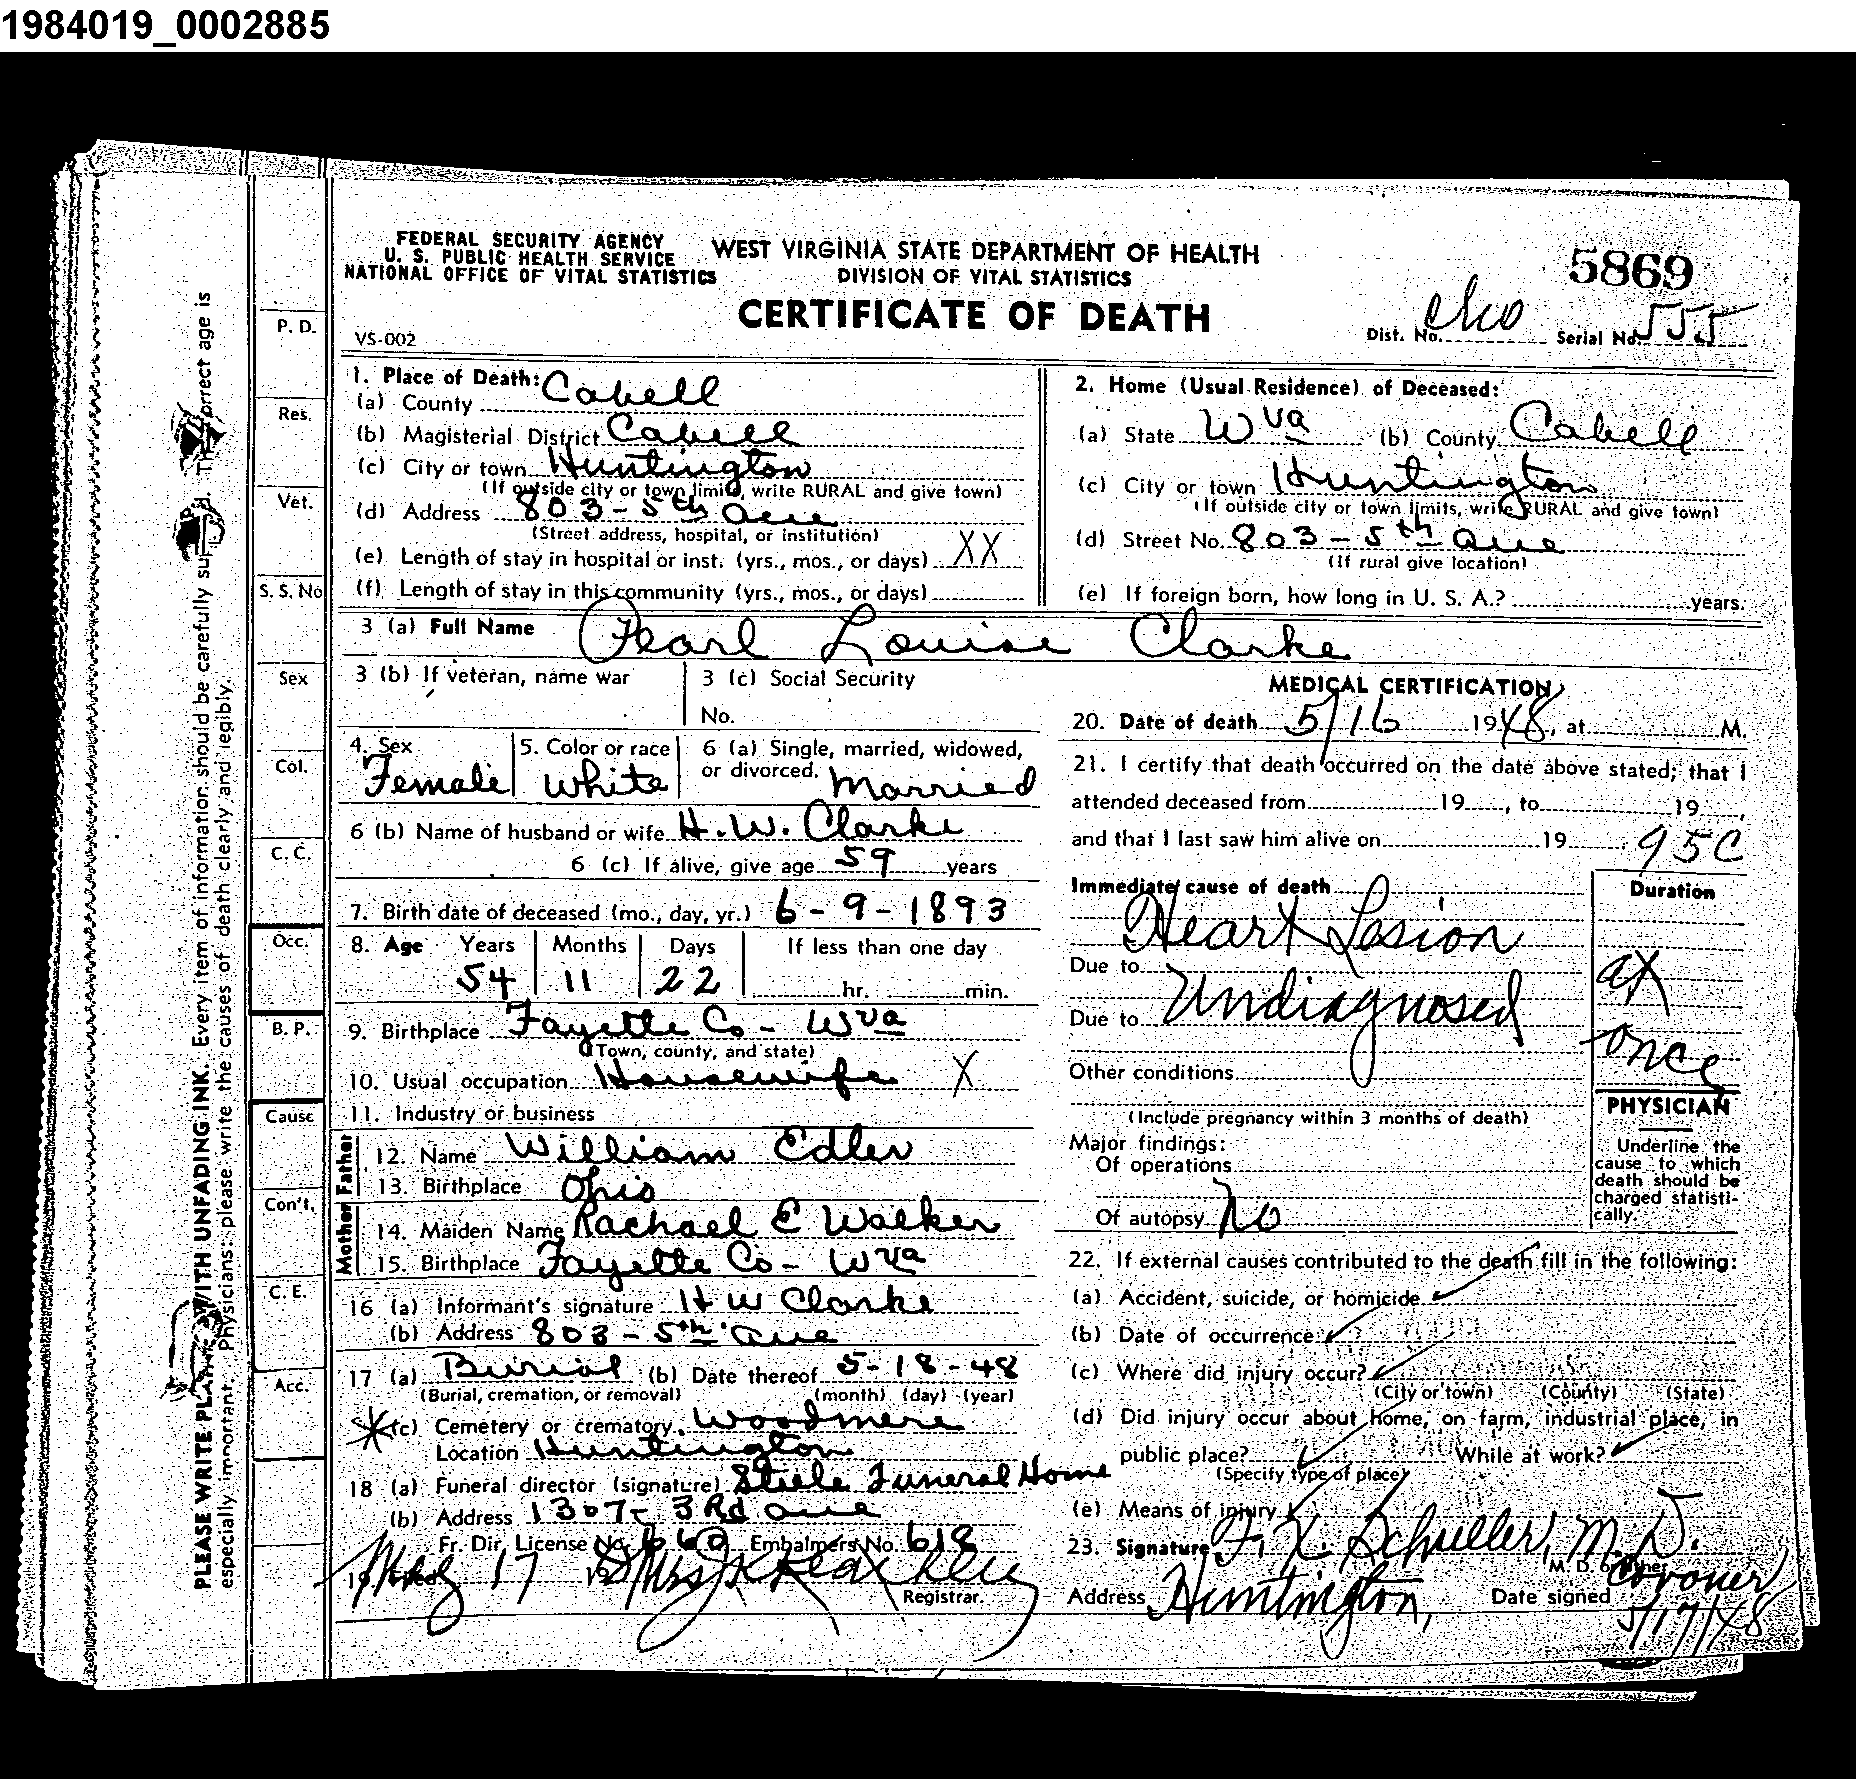 1984019_0002885
FEDERAL SECURITY AGENCY
U. S. PUBLIC HEALTH SERVICE
NATIONAL OFFICE OF VITAL STATISTICS
WEST VIRGINIA STATE DEPARTMENT OF HEALTH
DIVISION OF VITAL STATISTICS
CERTIFICATE OF DEATH
5869
VS-002
Dist. No. Serial No. 555
1. Place of Death:
(a) County Cabell
(b) Magisterial District Cabell
(c) City or town Huntington
(If outside city or town limits, write RURAL and give town)
(d) Address 803 - 5th Ave
(Street address, hospital, or institution)
(e) Length of stay in hospital or inst. (yrs., mos., or days) XX
(f) Length of stay in this community (yrs., mos., or days)
2. Home (Usual Residence) of Deceased:
(a) State W Va (b) County Cabell
(c) City or town Huntington
(If outside city or town limits, write RURAL and give town)
(d) Street No. 803 - 5th Ave
(If rural give location)
(e) If foreign born, how long in U. S. A.? years.
3 (a) Full Name Pearl Louise Clarke
3 (b) If veteran, name war
3 (c) Social Security
No.
4. Sex Female
5. Color or race White
6 (a) Single, married, widowed,
or divorced. Married
6 (b) Name of husband or wife H. W. Clarke
6 (c) If alive, give age 59 years
7. Birth date of deceased (mo., day, yr.) 6 - 9 - 1893
8. Age Years Months Days If less than one day
54 11 22 hr. min.
9. Birthplace Fayette Co - W Va
(Town, county, and state)
10. Usual occupation Housewife X
11. Industry or business
Father
12. Name William Edler
13. Birthplace Ohio
Mother
14. Maiden Name Rachael E Walker
15. Birthplace Fayette Co - W Va
16 (a) Informant's signature H W Clarke
(b) Address 803 - 5th Ave
17 (a) Burial (b) Date thereof 5-18-48
(Burial, cremation, or removal) (month) (day) (year)
(c) Cemetery or crematory Woodmere
Location Huntington
18 (a) Funeral director (signature) Steele Funeral Home
(b) Address 1307 - 3Rd Ave
Fr. Dir. License No. 660 Embalmers No. 618
May 17
Registrar.
MEDICAL CERTIFICATION
20. Date of death 5/16 1948, at M.
21. I certify that death occurred on the date above stated; that I
attended deceased from 19, to 19,
and that I last saw him alive on 19
95C
Immediate cause of death
Heart Lesion
Due to
Undiagnosed
Due to
Duration
at
once
Other conditions
(Include pregnancy within 3 months of death)
Major findings:
Of operations
Of autopsy No
PHYSICIAN
Underline the
cause to which
death should be
charged statisti-
cally.
22. If external causes contributed to the death fill in the following:
(a) Accident, suicide, or homicide
(b) Date of occurrence
(c) Where did injury occur?
(City or town) (County) (State)
(d) Did injury occur about home, on farm, industrial place, in
public place? While at work?
(Specify type of place)
(e) Means of injury
23. Signature F. X. Schuller, M. D.
M. D. or other Coroner
Address Huntington, Date signed 5/17/48
P. D.
Res.
Vet.
S. S. No
Sex
Col.
C. C.
Occ.
B. P.
Cause
Con't.
C. E.
Acc.
PLEASE WRITE PLAINLY WITH UNFADING INK. Every item of information should be carefully The correct age is
especially important. Physicians: please write the causes of death clearly and legibly.